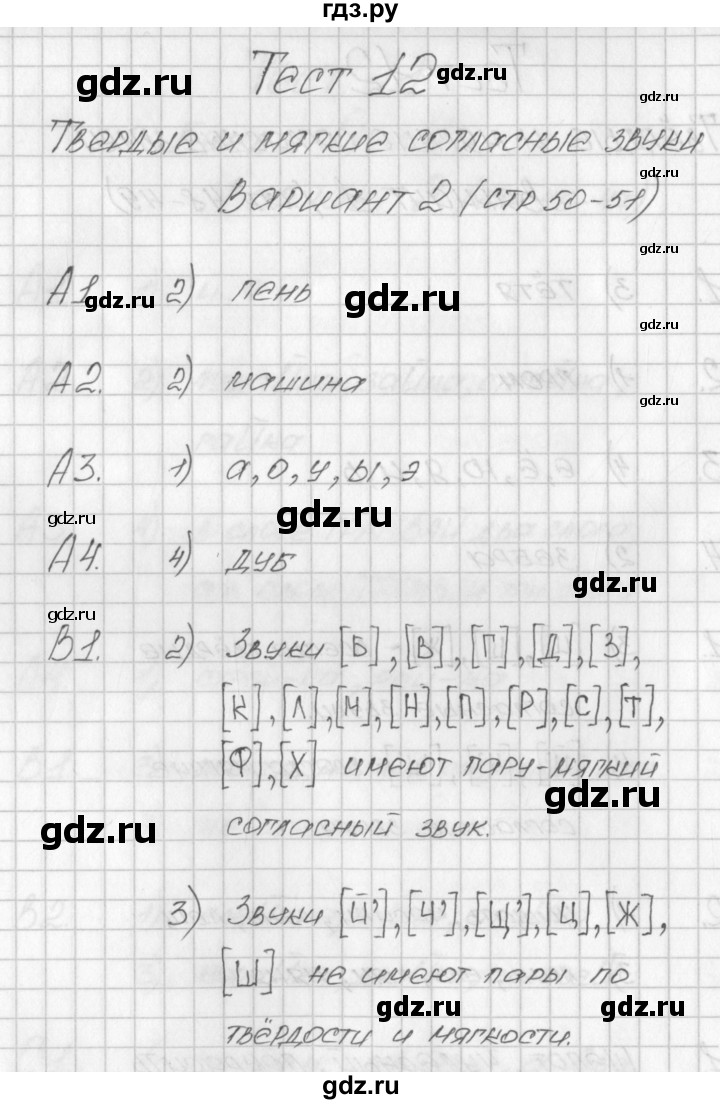 гдз.ру
Тест 12
gdz.ru gdz.ru
gdz.ru
Твердые и мягкие согласные звуки
gdz.ru
Вариант 2 (стр 50-51)
gdz.ru
А1. 2) лень
gdz.ru gdz.ru
gdz.ru
А2. 2) машина
gdz.ru
А3. 1) а, о, у, ы, э
gdz.ru gdz.ru
А4. 4) дуб
gdz.ru
gdz.ru
В1. 2) Звуки [б], [в], [г], [д], [з],
[к], [л], [м], [н], [п], [р], [с], [т],
[ф], [х] имеют пару-мягкий
gdz.ru
согласный звук.
gdz.ru
3) Звуки [й'], [ч'], [щ'], [ц], [ж],
[ш] не имеют пары по
gdz.ru gdz.ru
твёрдости и мягкости.
gdz.ru